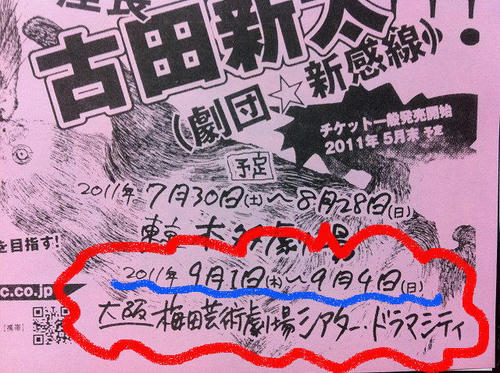 座長
古田新太!!!
(劇団☆新感線)
チケット一般発売開始
2011年5月末予定
予定
2011年7月30日(土)～8月28日(日)
東京 本多劇場
を目指す!
2011年9月1日(木)～9月4日(日)
c.co.jp
大阪 梅田芸術劇場シアター・ドラマシティ
【携帯】